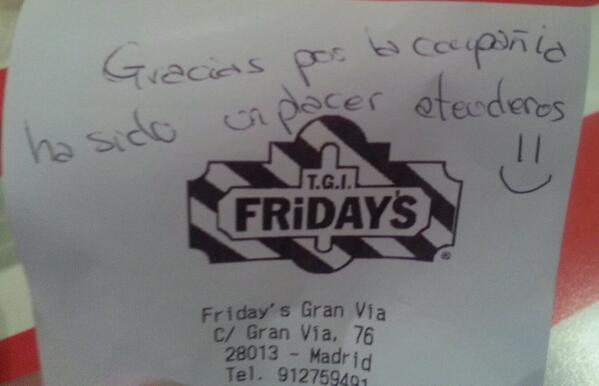 Gracias por la compañia
ha sido un placer atenderos
T.G.I.
FRiDAY'S
®
Friday's Gran Vía
C/ Gran Vía, 76
28013 - Madrid
Tel. 912759491